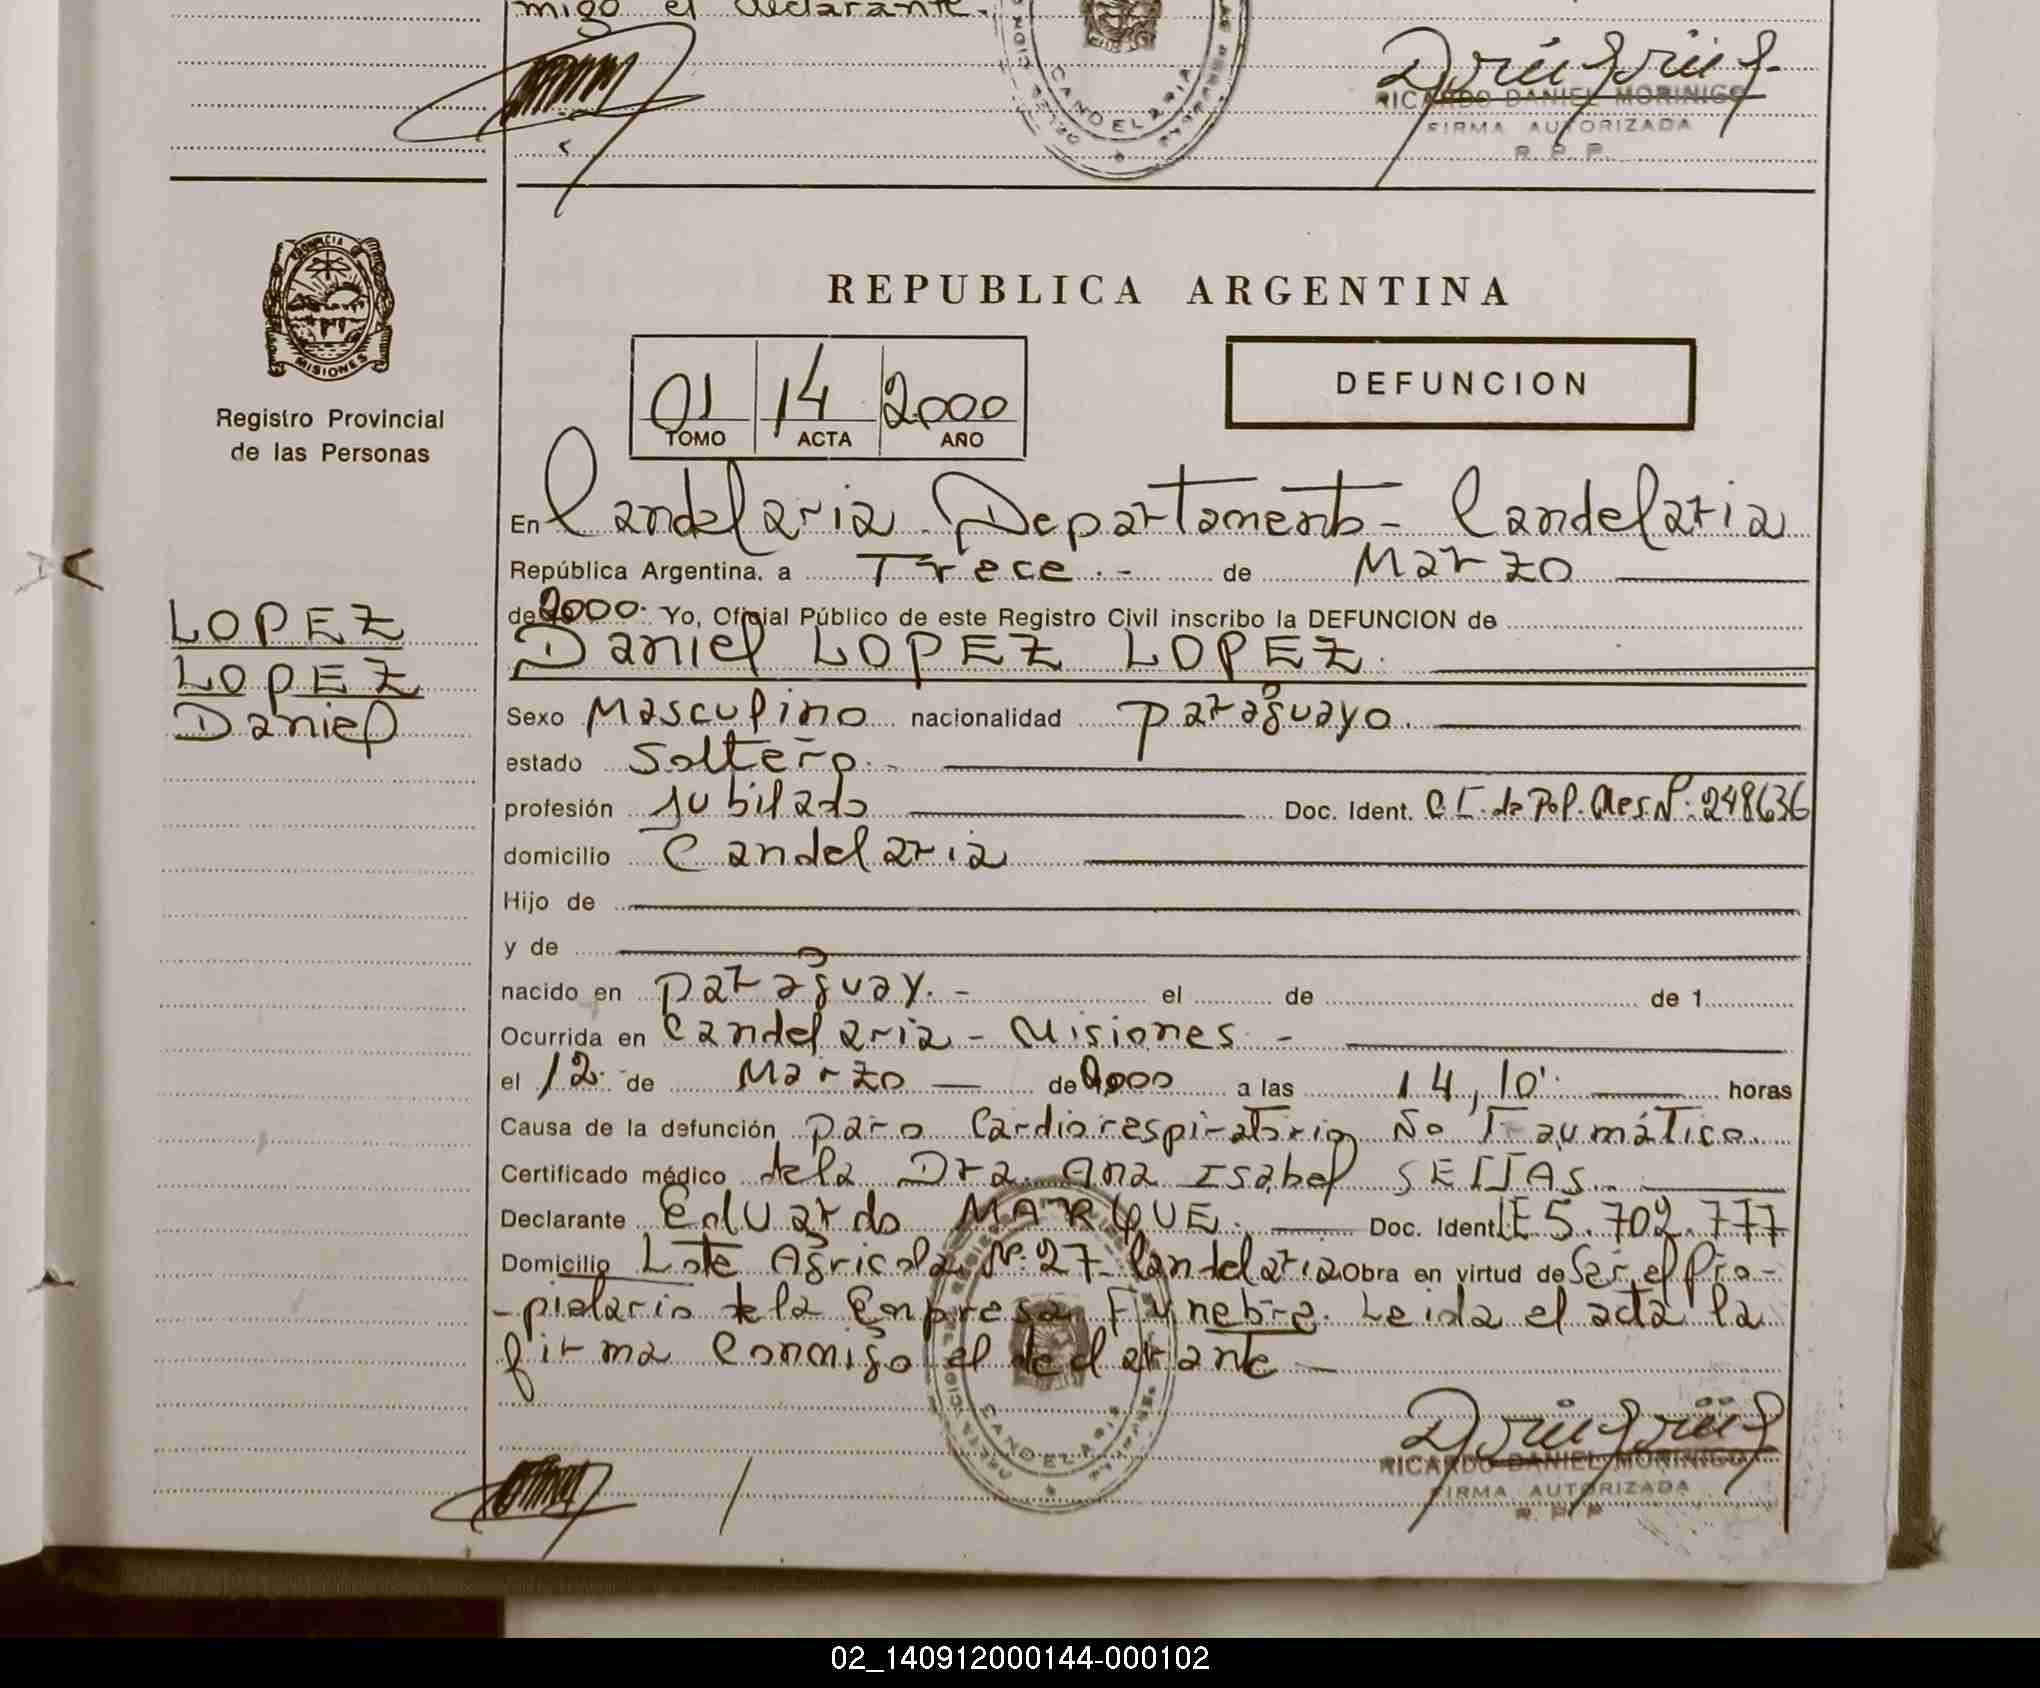 migo el declarante.
CANDELARIA
RICARDO DANIEL MORINIGO
FIRMA AUTORIZADA
R. P. P.
PROVINCIA DE
MISIONES
Registro Provincial
de las Personas
REPUBLICA ARGENTINA
01 14 2000
TOMO ACTA AÑO
DEFUNCION
En Candelaria Departamento Candelaria
República Argentina, a Trece.- de Marzo
de 2000. Yo, Oficial Público de este Registro Civil inscribo la DEFUNCION de
Daniel LOPEZ LOPEZ.
LOPEZ
LOPEZ
Daniel
Sexo Masculino nacionalidad paraguayo.
estado Soltero.-
profesión Jubilado Doc. Ident. C.I. de Pol. Mes. Nº: 248636
domicilio Candelaria
Hijo de
y de
nacido en paraguay.- el de de 1
Ocurrida en Candelaria - Misiones -
el 12 de Marzo de 2000 a las 14,10' horas
Causa de la defunción paro Cardiorespiratorio No Traumático.
Certificado médico de la Dra. Ana Isabel SEIJAS.
Declarante Eduardo MARQUE. Doc. Ident. LE 5.702.777
Domicilio Lote Agricola Nº: 27 - Candelaria Obra en virtud de Ser el Pro-
-pietario de la Empresa Funebre. Leida el acta la
firma Conmigo el declarante -
CANDELARIA
RICARDO DANIEL MORINIGO
FIRMA AUTORIZADA
R. P. P.
02_140912000144-000102